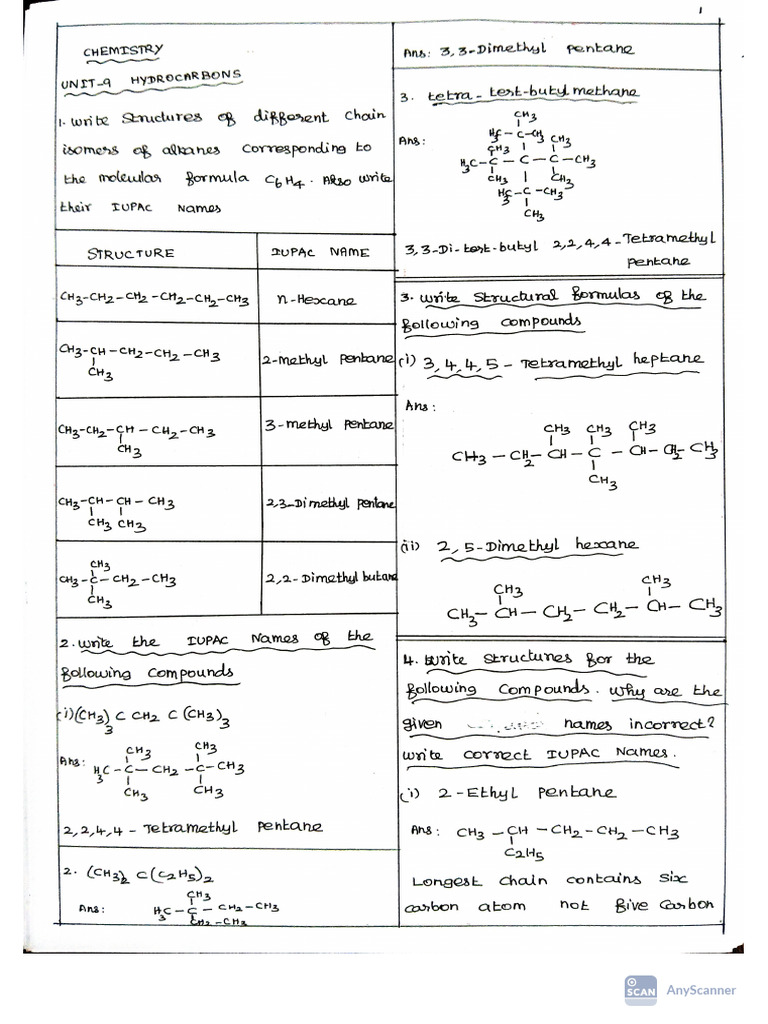 1
CHEMISTRY
UNIT-9 HYDROCARBONS
1. Write Structures of different Chain
isomers of alkanes corresponding to
the molecular formula C6H4. Also write
their IUPAC Names
STRUCTURE IUPAC NAME
CH3-CH2-CH2-CH2-CH2-CH3 n-Hexane
CH3-CH-CH2-CH2-CH3 2-methyl pentane
CH3
CH3-CH2-CH-CH2-CH3 3-methyl pentane
CH3
CH3-CH-CH-CH3 2,3-Dimethyl pentane
CH3 CH3
CH3
CH3-C-CH2-CH3 2,2-Dimethyl butane
CH3
2. Write the IUPAC Names of the
following Compounds
(i) (CH3)3 C CH2 C (CH3)3
Ans:
CH3 CH3
H3C-C-CH2-C-CH3
CH3 CH3
2,2,4,4-Tetramethyl Pentane
2. (CH3)2 C(C2H5)2
Ans:
CH3
H3C-C-CH2-CH3
CH2-CH3
Ans: 3,3-Dimethyl pentane
3. tetra-test-butyl methane
Ans:
CH3
H3C-C-CH3
CH3 CH3
H3C-C-C-C-CH3
CH3 CH3
H3C-C-CH3
CH3
3,3-Di-test-butyl 2,2,4,4-Tetramethyl
pentane
3. Write Structural formulas of the
following compounds
(i) 3,4,4,5-Tetramethyl heptane
Ans:
CH3 CH3 CH3
CH3-CH2-CH-C-CH-CH2-CH3
CH3
(ii) 2,5-Dimethyl hexane
CH3 CH3
CH3-CH-CH2-CH2-CH-CH3
4. Write structures for the
following Compounds. Why are the
given names incorrect?
Write correct IUPAC Names.
(i) 2-Ethyl pentane
Ans: CH3-CH-CH2-CH2-CH3
C2H5
Longest chain contains six
carbon atom not five Carbon
SCAN AnyScanner